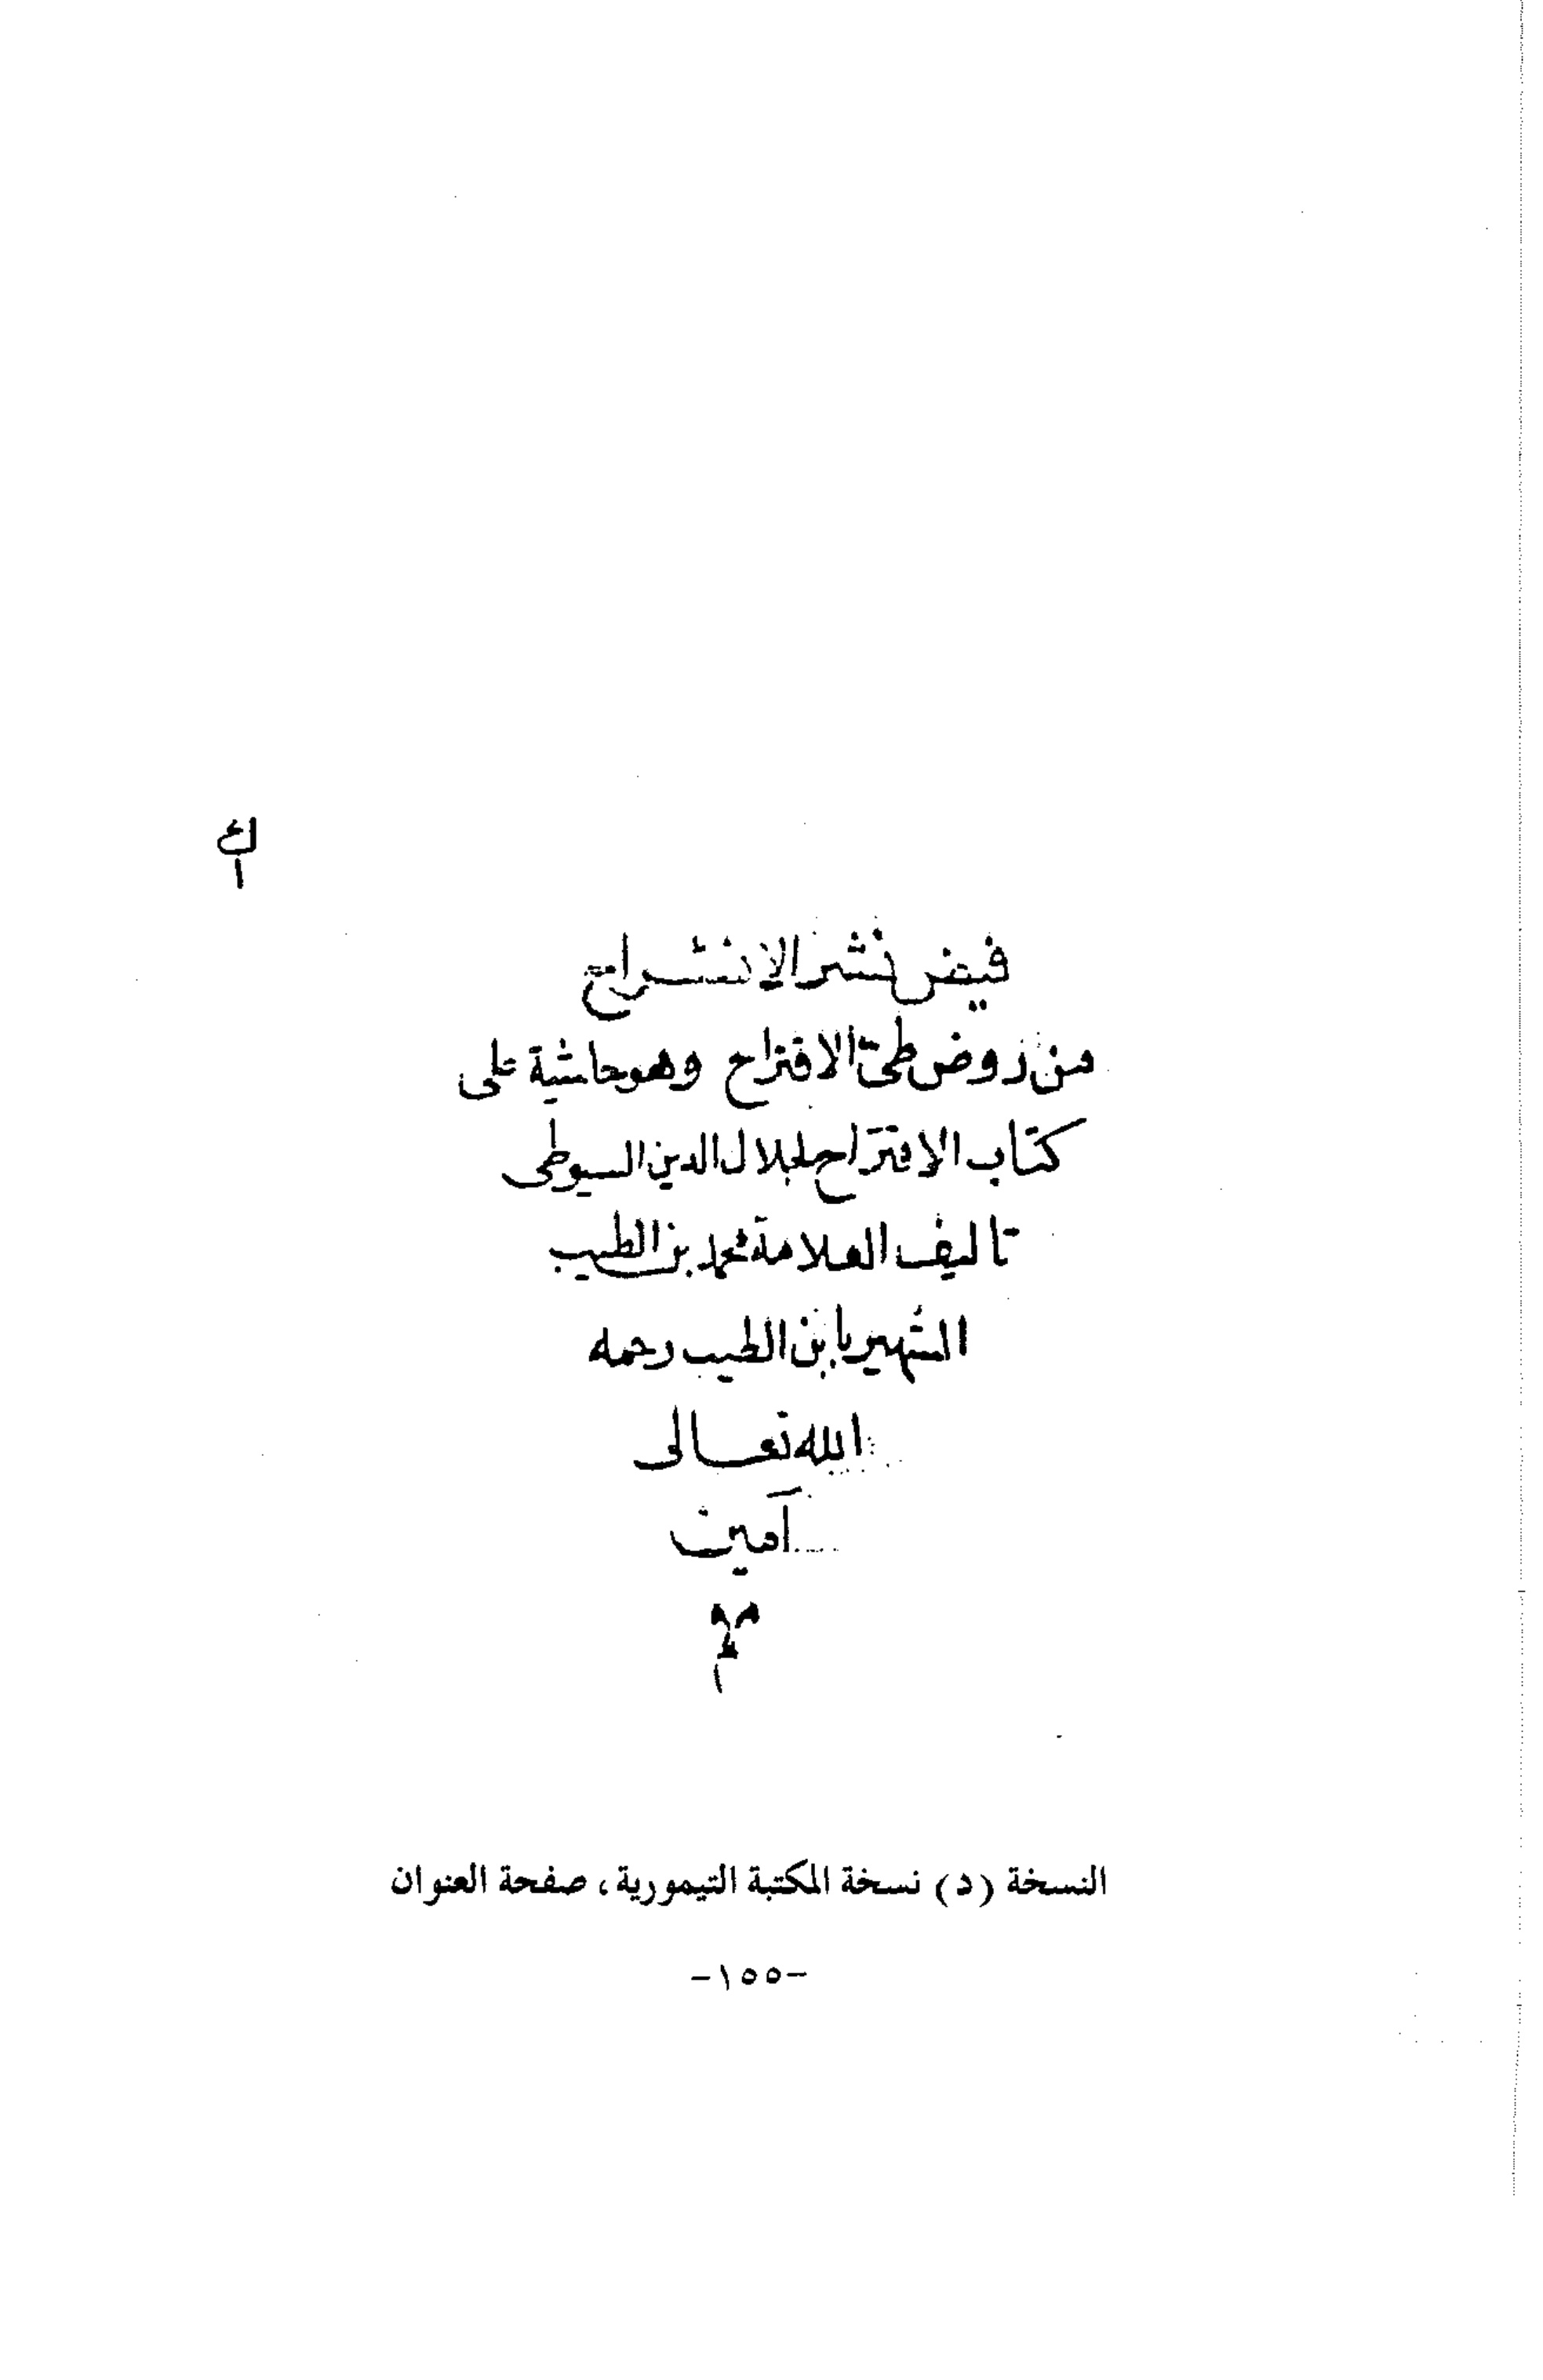 ك
ا
فيض نشر الانشراح
من روض طي الاقتراح وهو حاشية على
كتاب الاقتراح لجلال الدين السيوطى
تاليف العلامة محمد بن الطيب
الشهير بابن الطيب رحمه
الله تعالى
آمين
النسخة (د) نسخة المكتبة التيمورية، صفحة العنوان
-١٥٥-